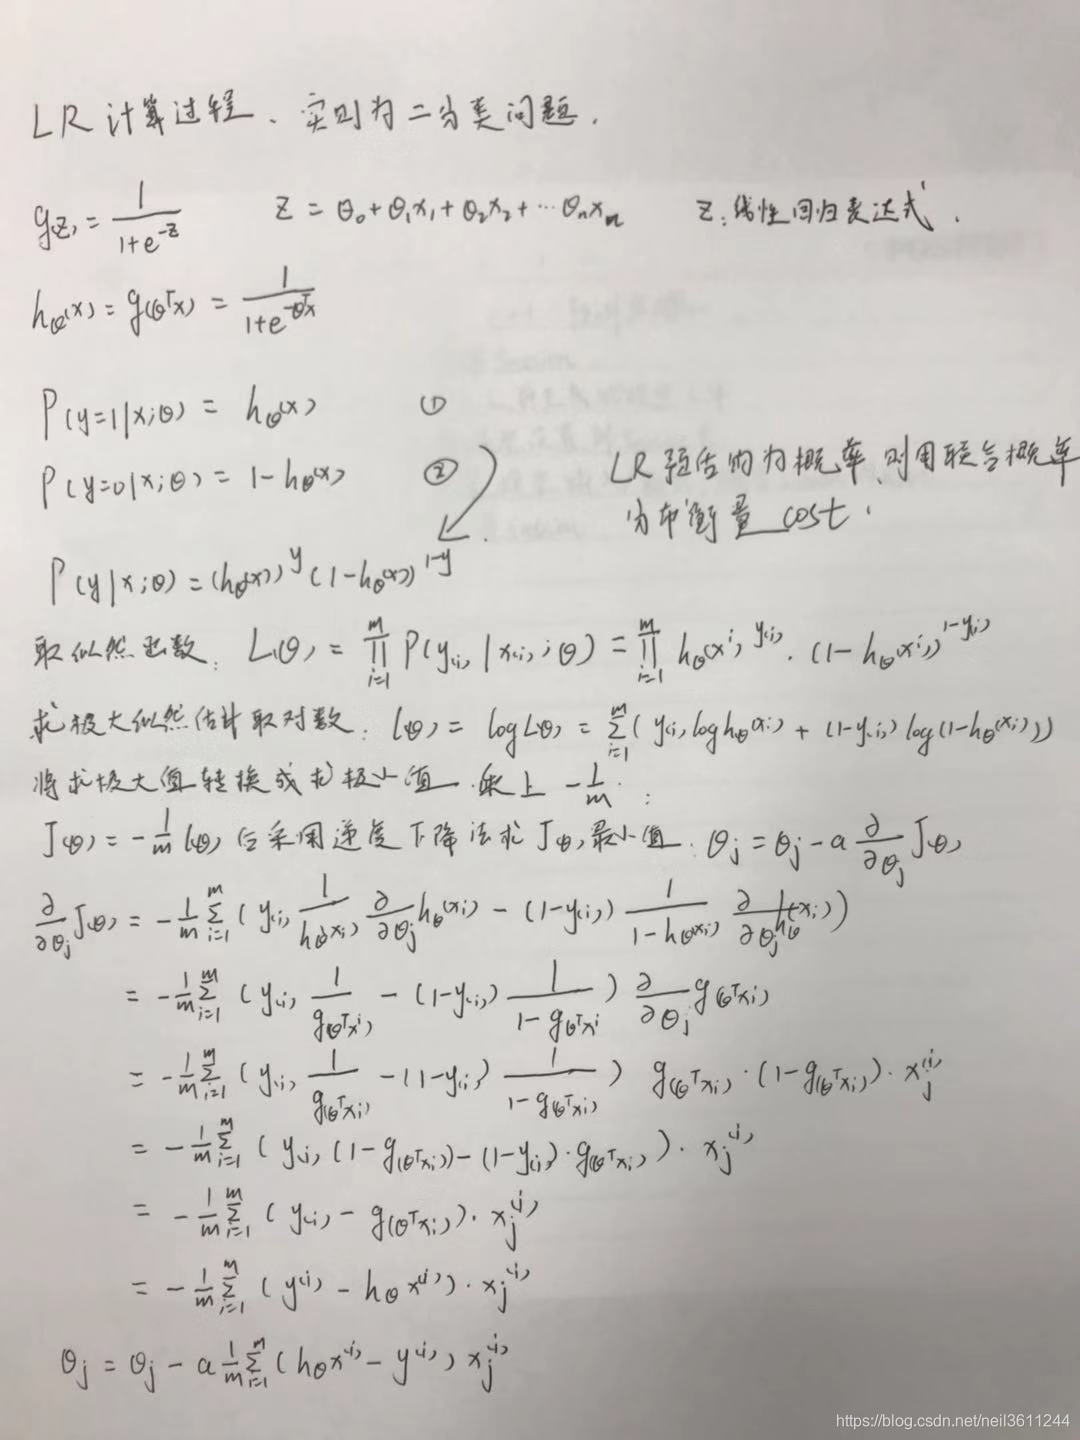 LR 计算过程、实则为二分类问题.
g(z) = \frac{1}{1+e^{-z}} z = θ₀+θ₁x₁+θ₂x₂+⋯θₙxₙ z:线性回归表达式.
h_θ(x) = g(θ^T x) = \frac{1}{1+e^{-θ^T x}}
P(y=1|x;θ) = h_θ(x) ①
P(y=0|x;θ) = 1-h_θ(x) ②
LR 预估的为概率、则用联合概率
分布衡量 cost.
P(y|x;θ) = (h_θ(x))^y (1-h_θ(x))^{1-y}
取似然函数: L(θ) = \prod_{i=1}^{m} P(y(i)|x(i);θ) = \prod_{i=1}^{m} h_θ(x^i)^{y(i)}·(1-h_θ(x^i))^{1-y(i)}
求极大似然估计取对数: l(θ) = log L(θ) = \sum_{i=1}^{m} (y(i) log h_θ(x_i) + (1-y(i)) log(1-h_θ(x_i)))
将求极大值转换成求极小值.乘上 -\frac{1}{m}:
J(θ) = -\frac{1}{m} l(θ) 后采用递度下降法求 J(θ)最小值. θ_j = θ_j - a \frac{∂}{∂θ_j} J(θ)
\frac{∂}{∂θ_j} J(θ) = -\frac{1}{m} \sum_{i=1}^{m} (y(i) \frac{1}{h_θ(x_i)} \frac{∂}{∂θ_j} h_θ(x_i) - (1-y(i)) \frac{1}{1-h_θ(x_i)} \frac{∂}{∂θ_j} h_θ(x_i))
= -\frac{1}{m} \sum_{i=1}^{m} (y(i) \frac{1}{g(θ^T x^i)} - (1-y(i)) \frac{1}{1-g(θ^T x^i}) \frac{∂}{∂θ_j} g(θ^T x_i)
= -\frac{1}{m} \sum_{i=1}^{m} (y(i) \frac{1}{g(θ^T x_i)} - (1-y(i)) \frac{1}{1-g(θ^T x_i)}) g(θ^T x_i)·(1-g(θ^T x_i))·x_j^{(i)}
= -\frac{1}{m} \sum_{i=1}^{m} (y(i)(1-g(θ^T x_i)-(1-y(i))·g(θ^T x_i))·x_j^{(i)}
= -\frac{1}{m} \sum_{i=1}^{m} (y(i) - g(θ^T x_i))·x_j^{(i)}
= -\frac{1}{m} \sum_{i=1}^{m} (y^{(i)} - h_θ x^{(i)})·x_j^{(i)}
θ_j = θ_j - a \frac{1}{m} \sum_{i=1}^{m} (h_θ x^{(i)} - y^{(i)}) x_j^{(i)}
https://blog.csdn.net/neil3611244